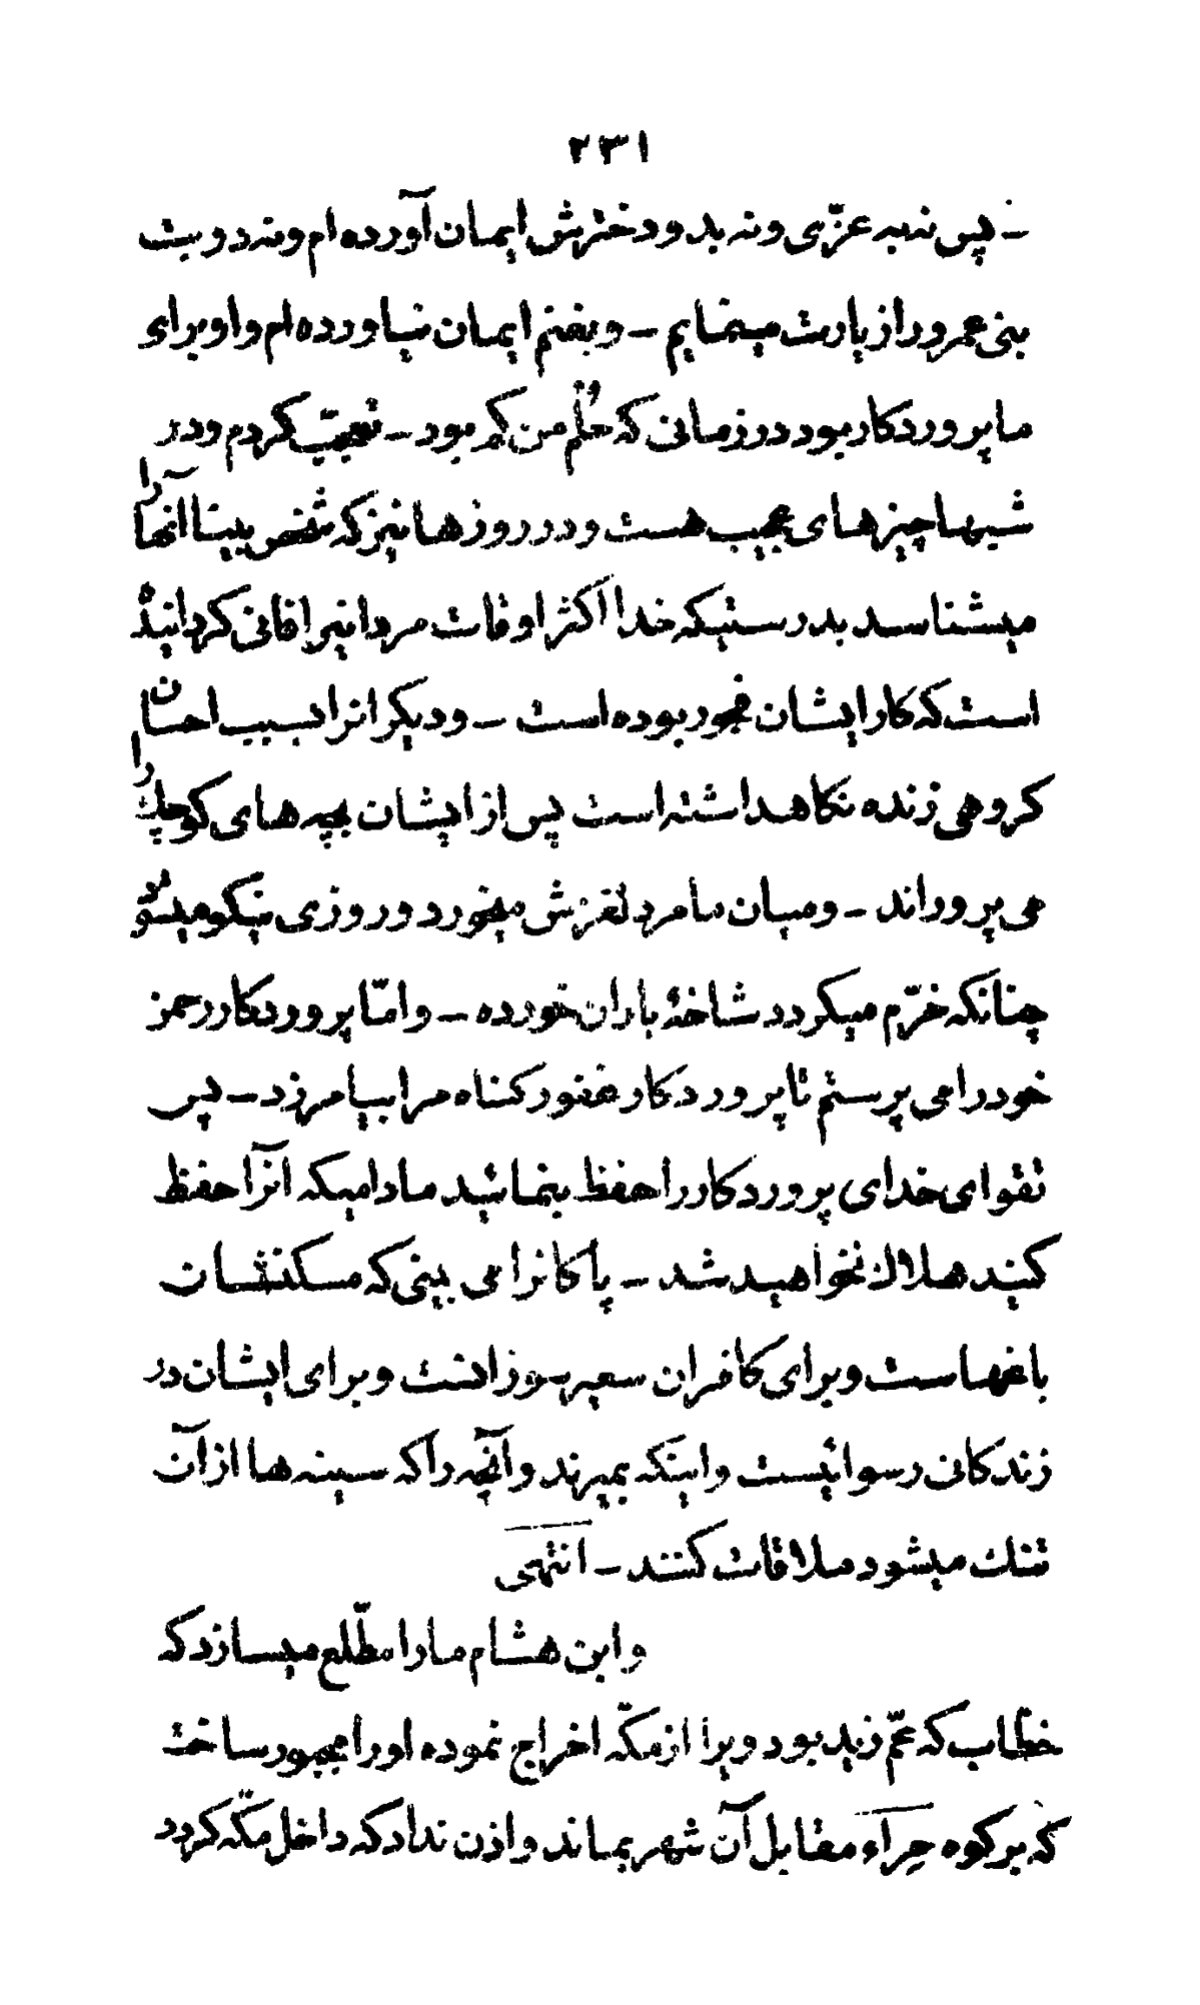 ٢٣١
ـ پس نه به عزّی و نه بدو دخترش ایمان آورده ام و نه دو بت
بنی عمرو را زیارت مینمایم ـ و بغنم ایمان نیاورده ام و او برای
ما پروردکار بود در زمانی که حُلُم من کم بود ـ تعجّب کردم و در
شبها چیزهای عجیب هست و در روزها نیز که شخص بینا آنها را
میشناسد بدرستیکه خدا اکثر اوقات مردانیرا فانی کردانیده
است که کار ایشان فجور بوده است ـ و دیکرانرا بسبب احسان
کروهی زنده نکاهداشته است پس از ایشان بچه های کوچک را
می پروراند ـ و میان ما مرد لغزش میخورد و روزی نیکو میشود
چنانکه خرّم میکردد شاخهٔ باران خورده ـ و امّا پروردکار رحمن
خود را می پرستم تا پروردکار غفور کناه مرا بیامرزد ـ پس
تقوای خدای پروردکار را حفظ بنمائید مادامیکه آنرا حفظ
کنید هلاک نخواهید شد ـ پاکانرا می بینی که مسکنشان
باغهاست و برای کافران سعیر سوزانست و برای ایشان در
زندکانی رسوائیست و اینکه بمیرند و آنچه را که سینه ها از آن
تنک میشود ملاقات کنند ـ انتهی
و ابن هشام ما را مطّلع میسازد که
خطّاب که عمّ زید بود ویرا از مکّه اخراج نموده او را مجبور ساخت
که بر کوه حِراء مقابل آن شهر بماند و اذن نداد که داخل مکّه کردد